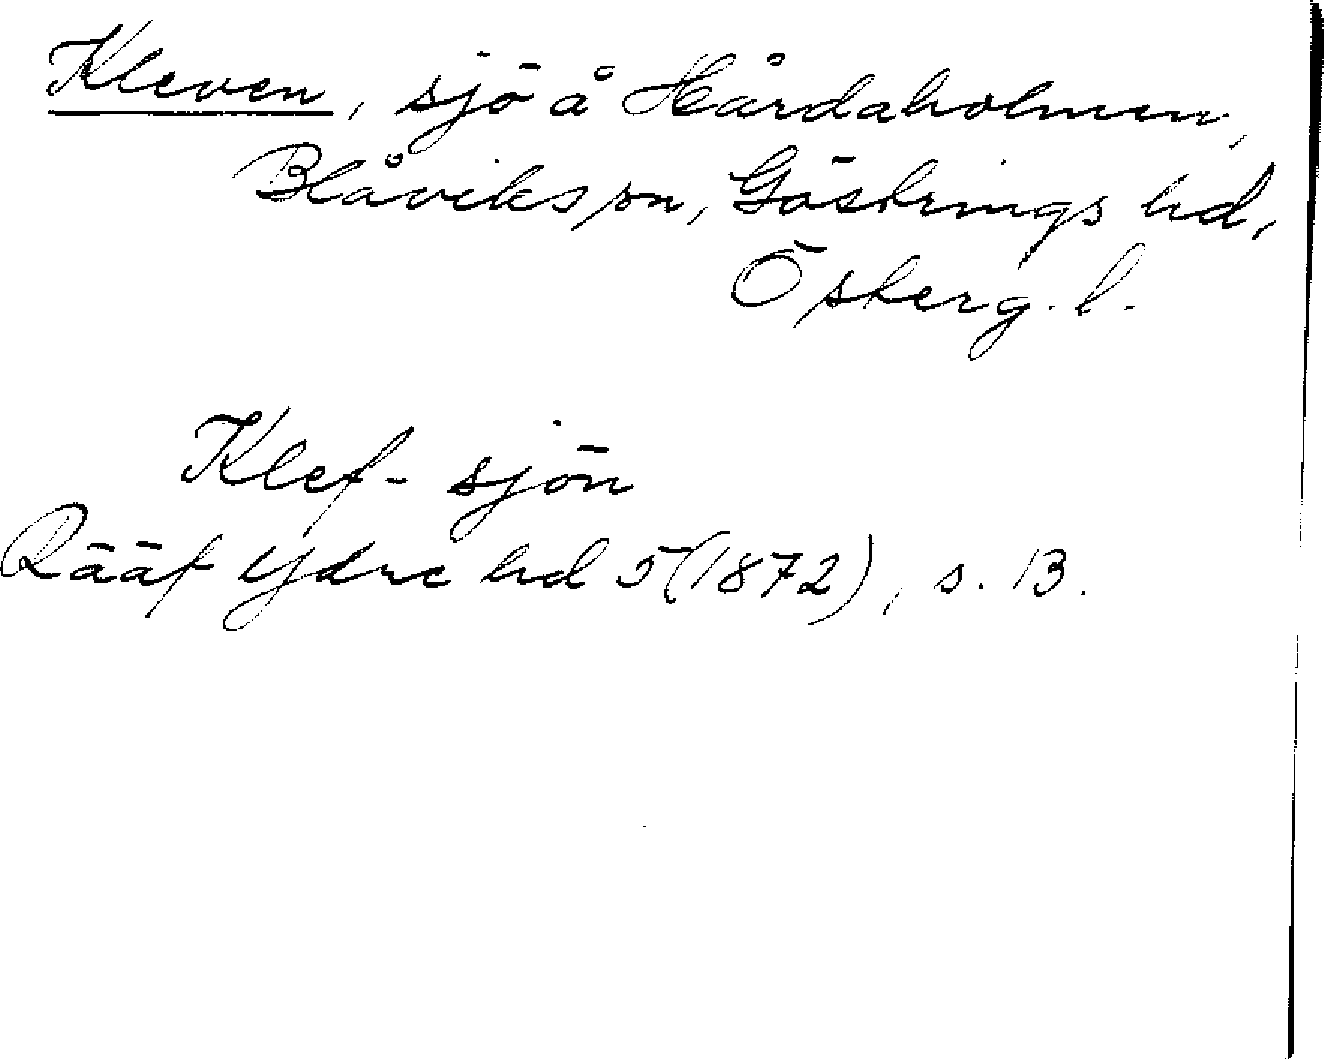 Kleven, sjö å Hårdaholmen,
Blåviks sn, Göstrings hd,
Österg. l.
Klef-sjön
Rääf Ydre hd 5 (1872), s. 13.